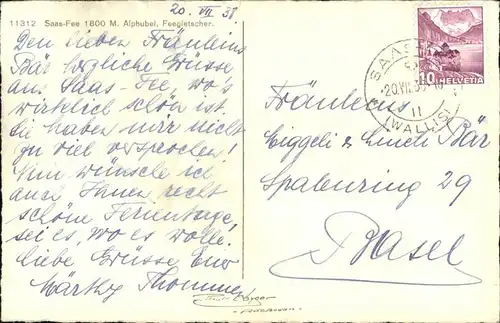 20. VII 38
11312 Saas-Fee 1800 M. Alphubel, Feegletscher.
Den lieben Fräuleins
Bär herzliche Grüsse
aus Saas-Fee, wo's
wirklich schön ist.
Sie haben mir nicht
zu viel versprochen!
Nun wünsche ich
auch Ihnen recht
schöne Ferientage,
sei es, wo es wolle.
Liebe Grüsse Eure
Märthy Thommen
SAAS
20.VII.38
(WALLIS)
10 HELVETIA
Fräuleins
Bär
Spalenring 29
Basel